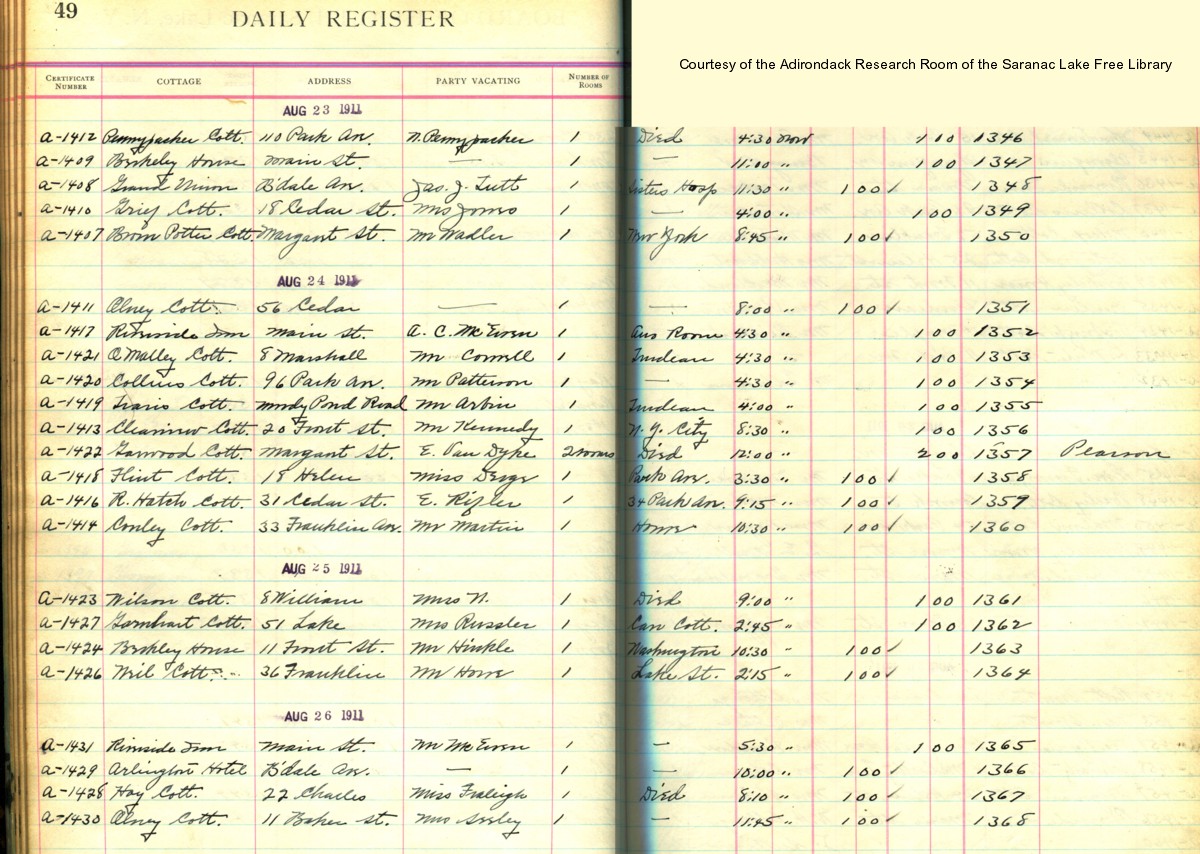 49
DAILY REGISTER
Courtesy of the Adirondack Research Room of the Saranac Lake Free Library
CERTIFICATE NUMBER COTTAGE ADDRESS PARTY VACATING NUMBER OF ROOMS
AUG 23 1911
a-1412 Pennypacker Cott. 110 Park Av. N. Pennypacker 1 Died 4:30 1 00 1346
a-1409 Berkeley House Main St. — 1 — 11:00 " 1 00 1347
a-1408 Grand Union B'dale Av. Jas. J. Tutt 1 Sisters Hosp 11:30 " 1 00 ✓ 1348
a-1410 Grief Cott. 18 Cedar St. Mrs Jones 1 — 4:00 " 1 00 1349
a-1407 Potter Cott. Margaret St. Mr Wadler 1 New York 8:45 " 1 00 ✓ 1350
AUG 24 1911
a-1411 Olney Cott. 56 Cedar — 1 — 8:00 " 1 00 ✓ 1351
a-1417 Riverside Inn Main St. A. C. McEwen 1 Room 4:30 " 1 00 1352
a-1421 O'Malley Cott. 8 Marshall Mr Cornell 1 Trudeau 4:30 " 1 00 1353
a-1420 Collins Cott. 96 Park Av. Mr Patterson 1 — 4:30 " 1 00 1354
a-1419 Travis Cott. Moody Pond Road Mr Arbin 1 Trudeau 4:00 " 1 00 1355
a-1413 Clearview Cott. 20 Front St. Mr Kennedy 1 N. Y. City 8:30 " 1 00 1356
a-1422 Garwood Cott. Margaret St. E. Van Dyke 2 rooms Died 12:00 " 2 00 1357 Pearson
a-1418 Flint Cott. 18 Helen Miss 1 Park Av. 3:30 " 1 00 ✓ 1358
a-1416 R. Hatch Cott. 31 Cedar St. E. Rifler 1 34 Park Av. 9:15 " 1 00 ✓ 1359
a-1414 Conley Cott. 33 Franklin Av. Mr Martin 1 Home 10:30 " 1 00 ✓ 1360
AUG 25 1911
a-1423 Wilson Cott. 8 William Miss N. 1 Died 9:00 " 1 00 1361
a-1427 Garnhart Cott. 51 Lake Mrs Russler 1 Cott. 2:45 " 1 00 1362
a-1424 Berkley House 11 Front St. Mr Hinkle 1 Washington 10:30 " 1 00 ✓ 1363
a-1426 Cott. 36 Franklin Mr Howe 1 Lake St. 2:15 " 1 00 ✓ 1364
AUG 26 1911
a-1431 Riverside Inn Main St. Mr McEwen 1 — 5:30 " 1 00 1365
a-1429 Arlington Hotel B'dale Av. — 1 — 10:00 " 1 00 ✓ 1366
a-1428 Hay Cott. 22 Charles Miss Fraleigh 1 Died 8:10 " 1 00 ✓ 1367
a-1430 Olney Cott. 11 Baker St. Mrs Seeley 1 — 11:45 " 1 00 ✓ 1368